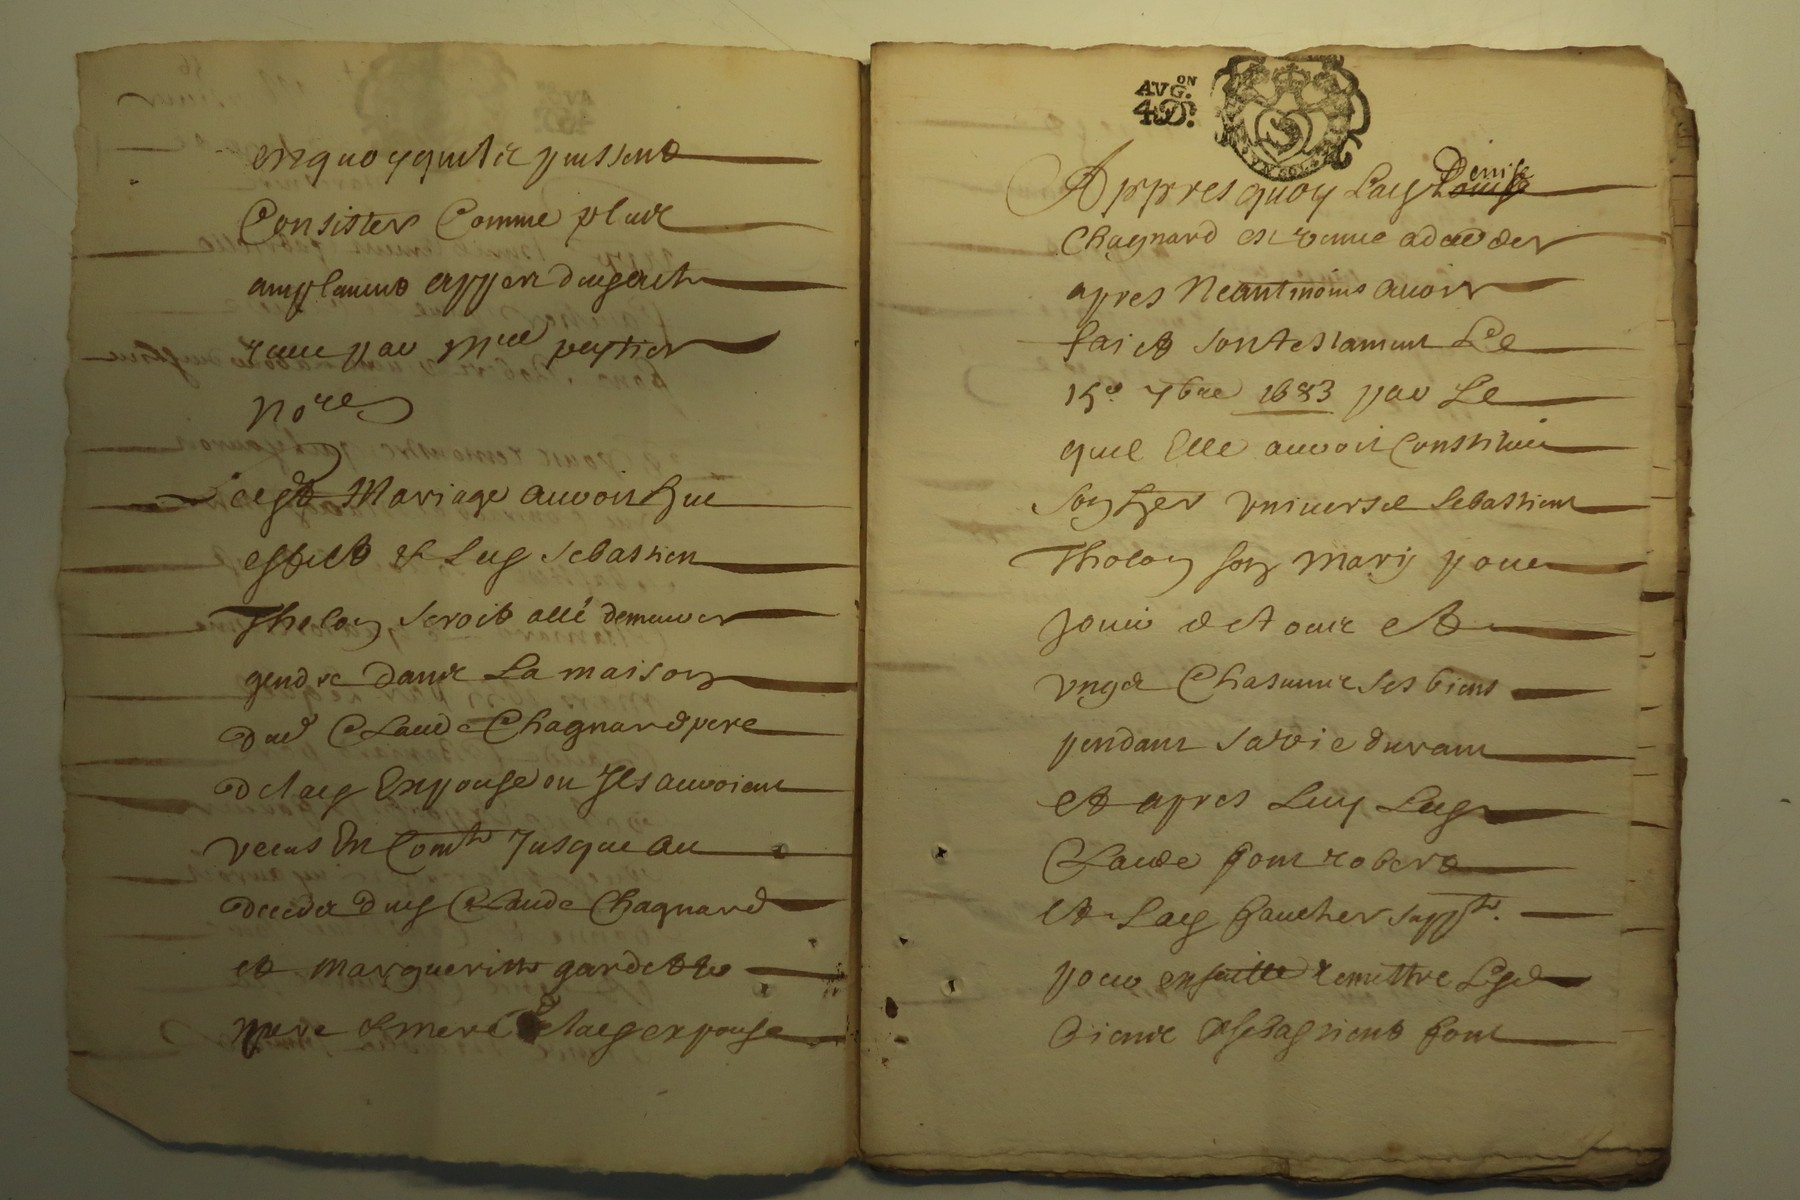 en quoy quilz puissent
Consister Comme plus
amplement appert dug act
receu par Mre peytier
nore
ce Mariage auroit heu
effect & Leg Sebastien
Tholoy seroit allé demeurer
gendre dans La maison
dud Claude Chagnard pere
de lag Expouse ou Ils auroient
vecus En Comte Jusque au
deceder dug Claude Chagnard
et Margueritte gardette
pere & mere de lag expouse
AVG.ON
4 D.
Appres quoy Lag Denise
Chagnard est venue a deceder
apres Neantmoins avoir
faict son testament Le
15e 7bre 1683 par Le
quel Elle auroit Constitué
son her vniversel Sebastien
Tholoy son Mary pour
Jouir de tous et
vngs Chascuns ses biens
pendant sa vie durant
et apres Luy Leg
Claude robert
et Lag faucher suppte.
pour ensuitte remettre Lesd
biens